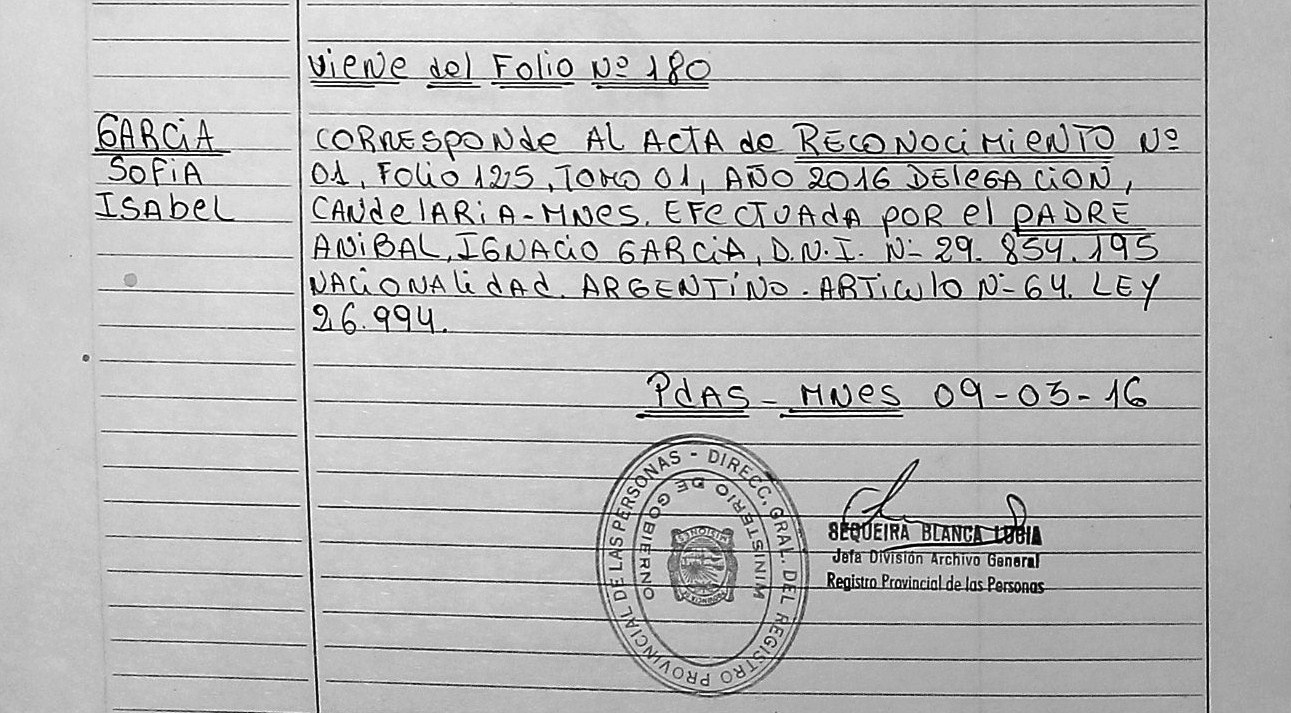 viene del Folio Nº 180
GARCiA
SOFiA
ISAbel
CORRESPONde Al ACTA de RECONOCiMiENTO Nº
01, Folio 125, TOMO 01, AÑO 2016 DElEGACiON,
CANdelARiA-MNES. EFECTUADA POR el PADRE
ANiBAL, IGNACiO GARCiA, D.N.I. N- 29.854.195
NACiONAlidAd. ARGENTiNO. ARTiCUlO N-64. LEY
26.994.
PdAS - MNes 09-03-16
REGISTRO PROVINCIAL DE LAS PERSONAS - DIRECC. GRAL. DEL
MINISTERIO DE GOBIERNO
MISIONES
PROVINCIA DE
SEQUEIRA BLANCA LUCIA
Jefa División Archivo General
Registro Provincial de las Personas